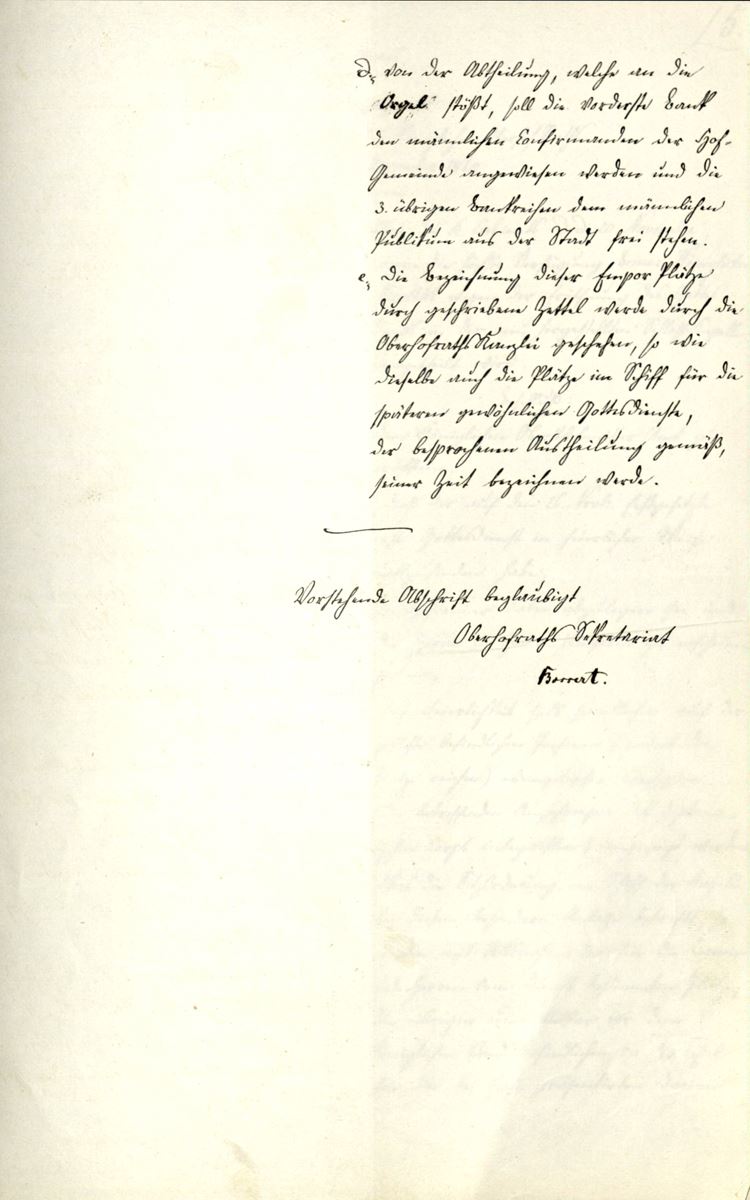 d., von der Abtheilung, welche an die
Orgel stößt, soll die vorderste Bank
den männlichen Confirmanden der Hof-
Gemeinde angewiesen werden und die
3. übrigen Bankreihen dem männlichen
Publikum aus der Stadt frei stehen.
e., Die Bezeichnung dieser Empor Plätze
durch geschriebene Zettel werde durch die
OberhofrathsKanzlei geschehen, so wie
dieselbe auch die Plätze im Schiff für die
späteren gewöhnlichen Gottesdienste,
der besprochenen Austheilung gemäß,
seiner Zeit bezeichnen werde.
Vorstehende Abschrift beglaubigt
Oberhofraths Sekretariat